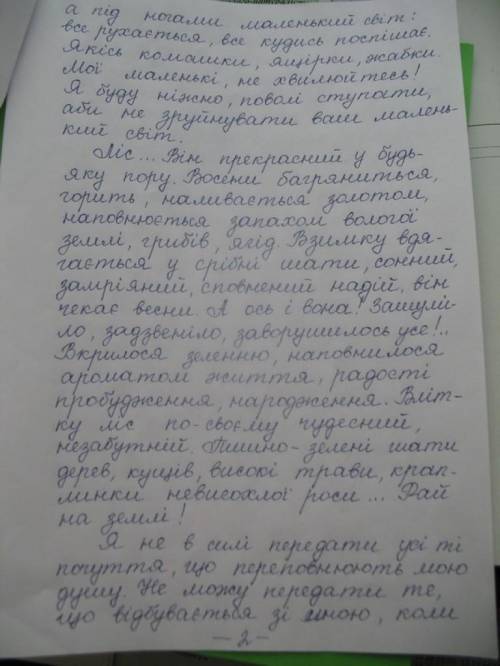 а під ногами маленький світ:
все рухається, все кудись поспішає.
Якісь комашки, ящірки, жабки.
Мої маленькі, не хвилюйтесь!
Я буду ніжно, поволі ступати,
аби не зруйнувати ваш малень-
кий світ.
Ліс... Він прекрасний у будь-
яку пору. Восени багряниться,
горить, наливається золотом,
наповнюється запахом вологої
землі, грибів, ягід. Взимку вдя-
гається у срібні шати, сонний,
замріяний, сповнений надій, він
чекає весни. А ось і вона! Зашумі-
ло, задзвеніло, заворушилось усе!..
Вкрилося зеленню, наповнилося
ароматом життя, радості
пробудження, народження. Вліт-
ку ліс по-своєму чудесний,
незабутній. Тьмяно-зелені шати
дерев, кущів, високі трави, крап-
линки невисохлої роси... Рай
на землі!
Я не в силі передати усі ті
почуття, що переповнюють мою
душу. Не можу передати те,
що відбувається зі мною, коли
-2-